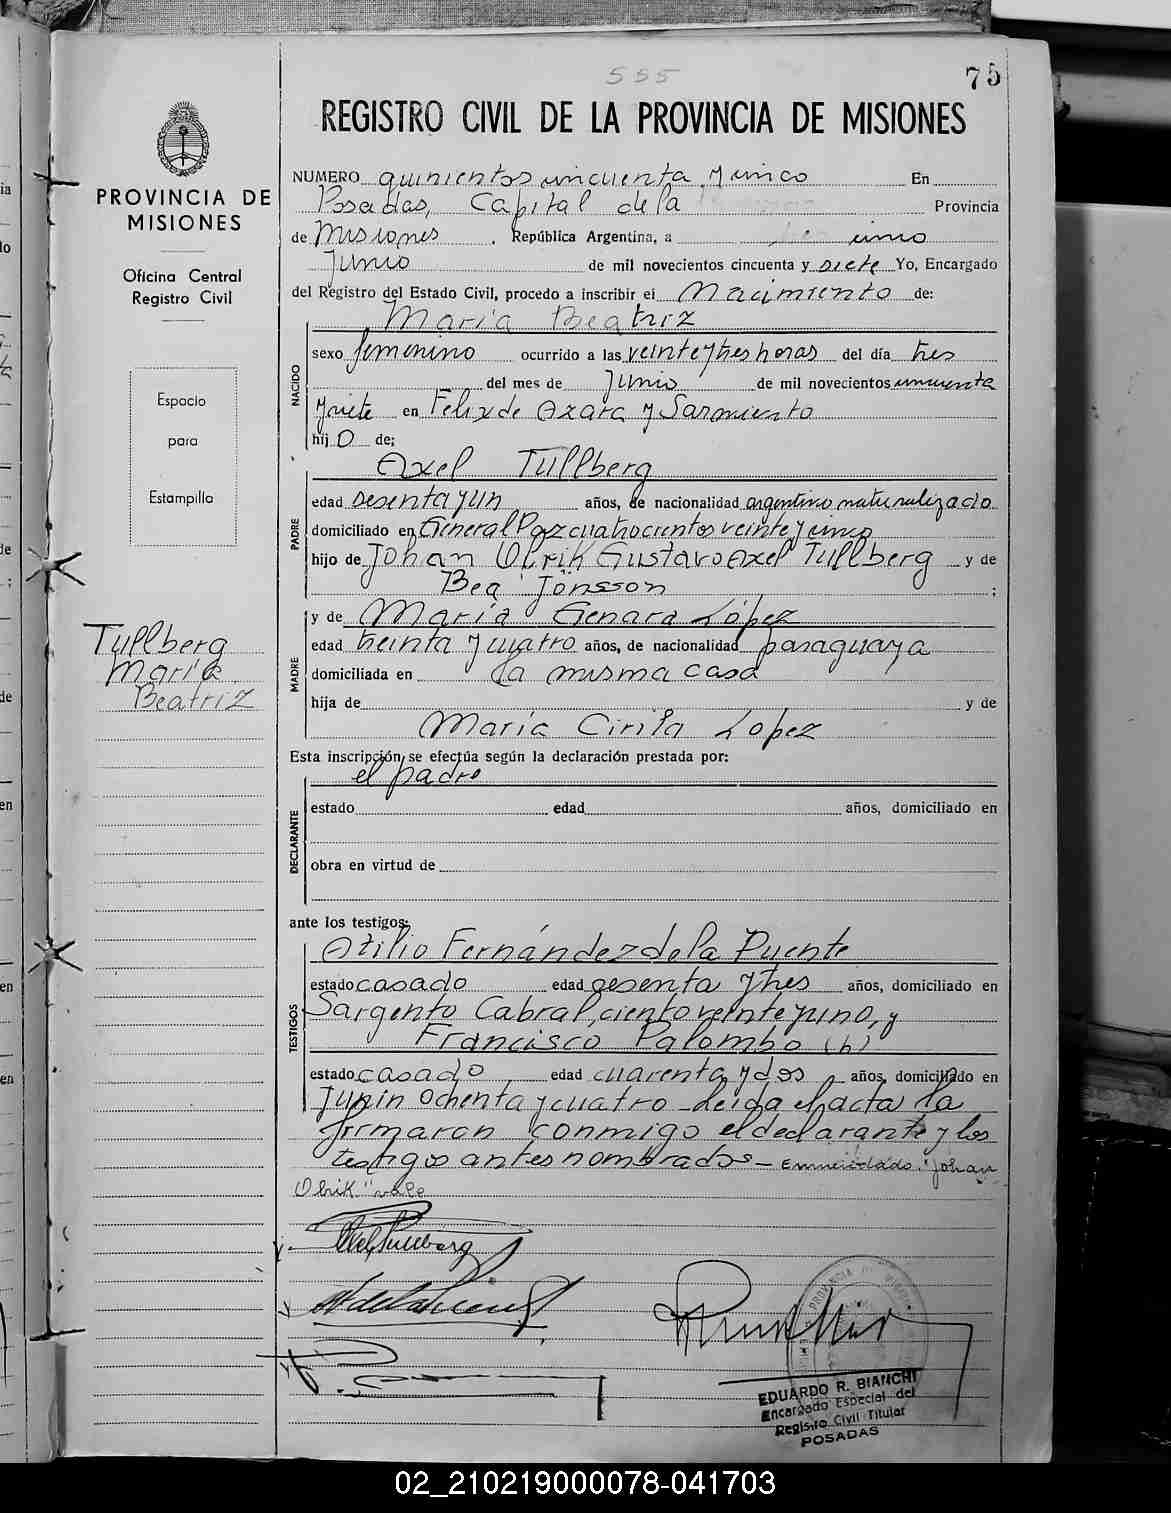 555
75
REGISTRO CIVIL DE LA PROVINCIA DE MISIONES
PROVINCIA DE
MISIONES
Oficina Central
Registro Civil
Espacio
para
Estampilla
Tullberg
María
Beatriz
NUMERO quinientos cincuenta y cinco En
Posadas, Capital de la Provincia
de Misiones, República Argentina, a uno
Junio de mil novecientos cincuenta y siete Yo, Encargado
del Registro del Estado Civil, procedo a inscribir el Nacimiento de:
María Beatriz
NACIDO
sexo femenino ocurrido a las veinte y tres horas del día tres
del mes de Junio de mil novecientos cincuenta
y siete en Felix de Azara y Sarmiento
hij a de;
Axel Tullberg
PADRE
edad sesenta y un años, de nacionalidad argentino naturalizado
domiciliado en General Paz cuatrocientos veinte y cinco
hijo de Johan Ulrik Gustavo Axel Tullberg y de
Bea Jönsson ;
y de María Genara López
MADRE
edad treinta y cuatro años, de nacionalidad paraguaya
domiciliada en la misma casa
hija de y de
María Cirila Lopez
Esta inscripción se efectúa según la declaración prestada por:
el padre
DECLARANTE
estado edad años, domiciliado en
obra en virtud de
ante los testigos:
Atilio Fernández de la Puente
TESTIGOS
estado casado edad sesenta y tres años, domiciliado en
Sargento Cabral, ciento veinte y uno, y
Francisco Palombo (h)
estado casado edad cuarenta y dos años, domiciliado en
Junín ochenta y cuatro - Leída el acta la
firmaron conmigo el declarante y los
testigos antes nombrados - Enmendado: "Johan
Ulrik" vale
Axel Tullberg
PROVINCIA DE
EDUARDO R. BIANCHI
Encargado Especial del
Registro Civil Titular
POSADAS
02_210219000078-041703